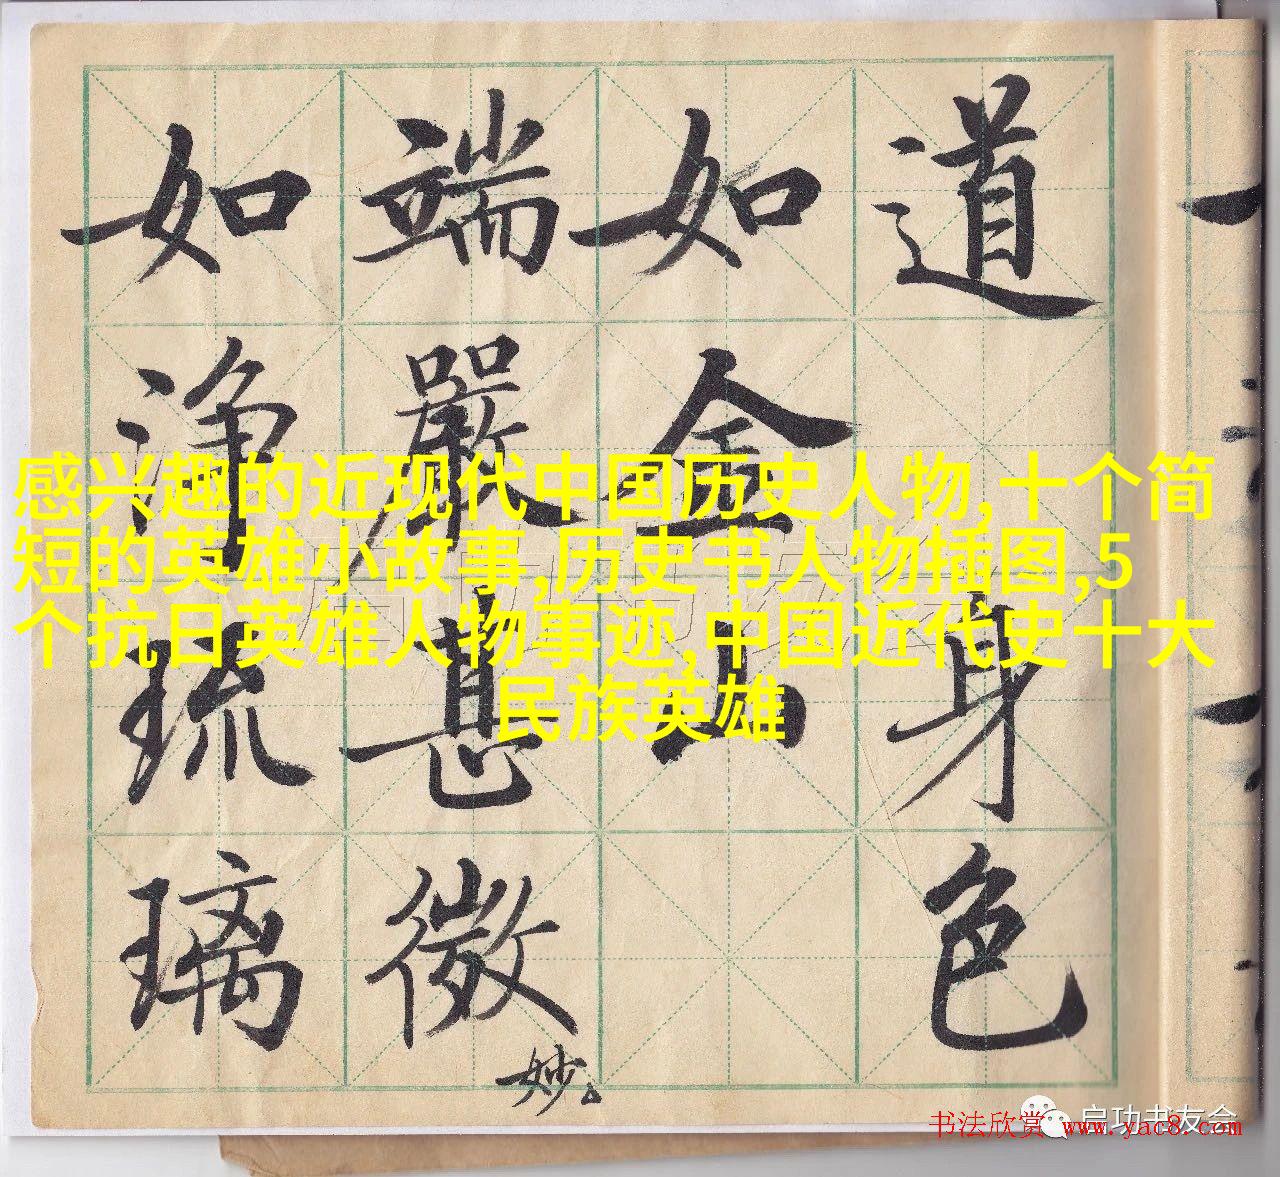 道身色
如金山
端嚴甚微妙
如淨琉璃
感兴趣的近现代中国历史人物,十个简
短的英雄小故事,历史书人物插图,5
个抗日英雄人物事迹,中国近代史十大
民族英雄
启功书友会
书法欣赏 www.yac8.com